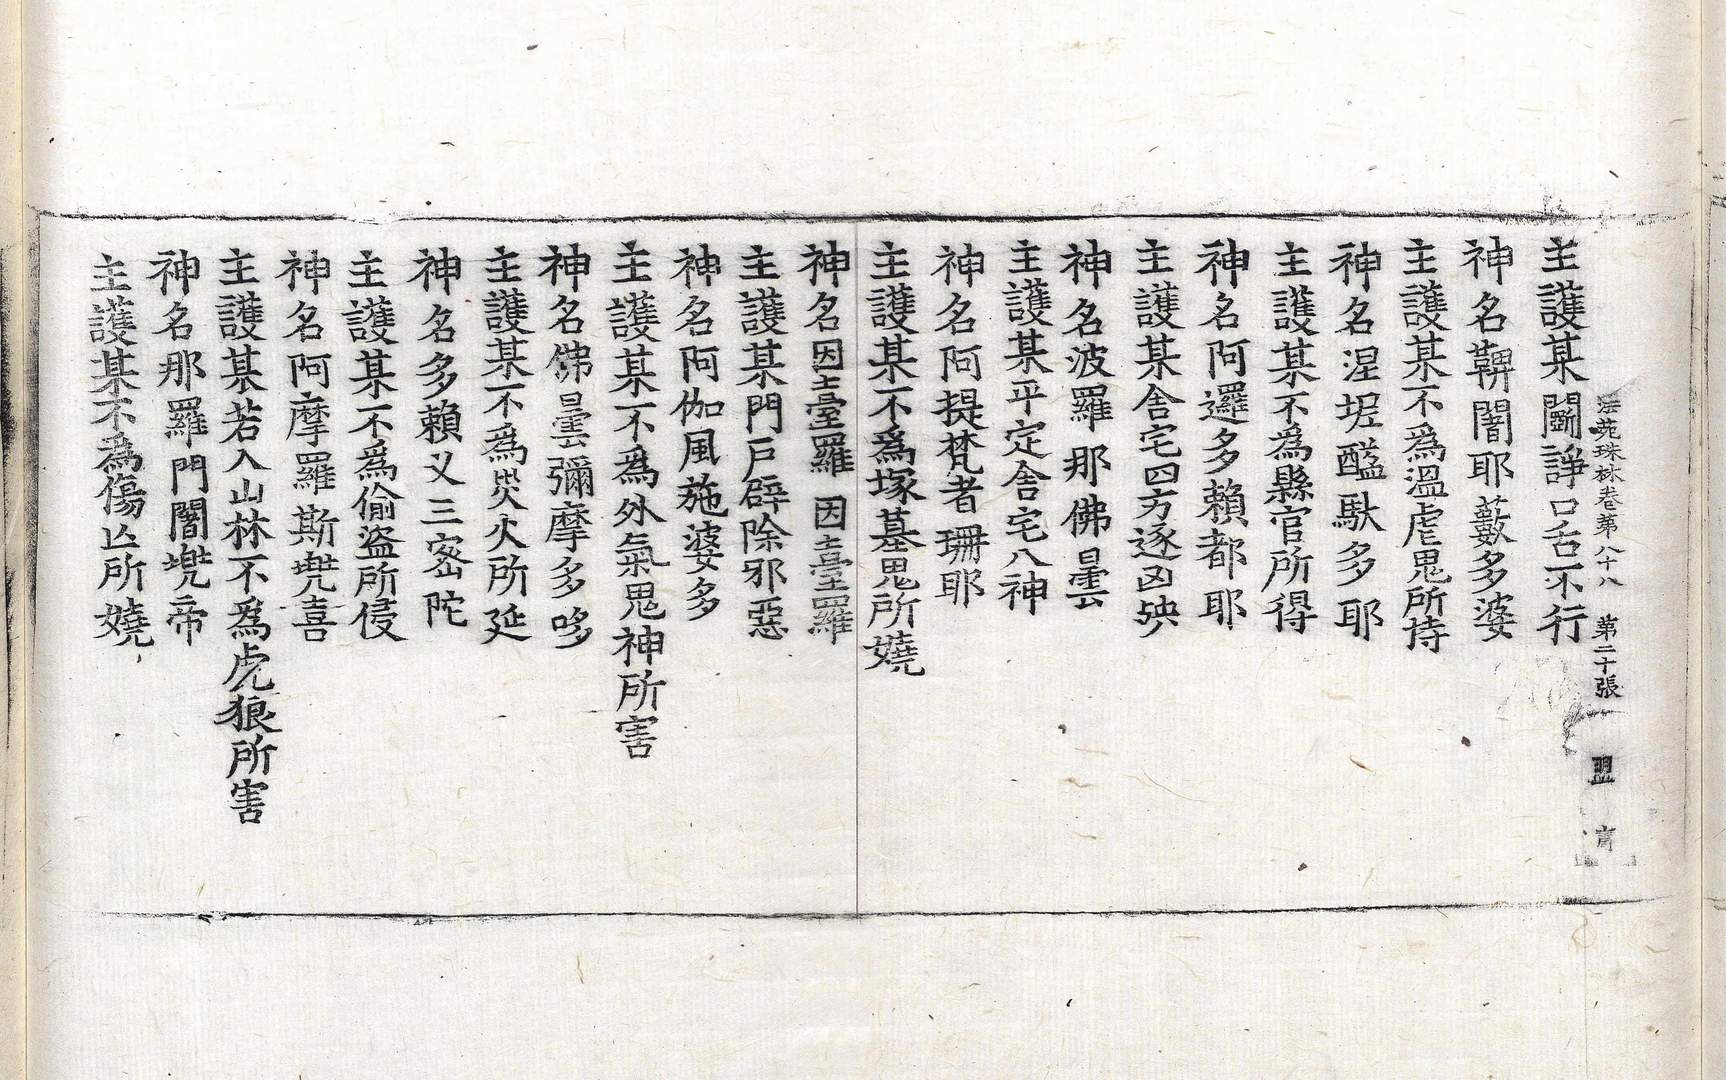 法苑珠林卷第八十八 第二十張 盟
主護某鬪諍口舌不行
神名鞞闍耶藪多婆
主護某不爲溫虐鬼所持
神名涅坭醯馱多耶
主護某不爲縣官所得
神名阿邏多賴都耶
主護某舍宅四方逐凶殃
神名波羅那佛曇
主護某平定舍宅八神
神名阿提梵者珊耶
主護某不爲塚墓鬼所嬈
神名因臺羅因臺羅
主護某門戶辟除邪惡
神名阿伽風施婆多
主護某不爲外氣鬼神所害
神名佛曇彌摩多哆
主護某不爲災火所延
神名多賴乂三密陀
主護某不爲偷盜所侵
神名阿摩羅斯兠喜
主護某若入山林不爲虎狼所害
神名那羅門闍兠帝
主護某不爲傷亡所嬈